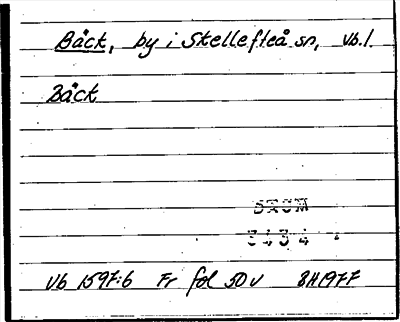 Bäck, by i Skellefteå sn, Vb.l.
Bäck
DAUM
3434
Vb 1597:6 Fr fol 50v BH1977